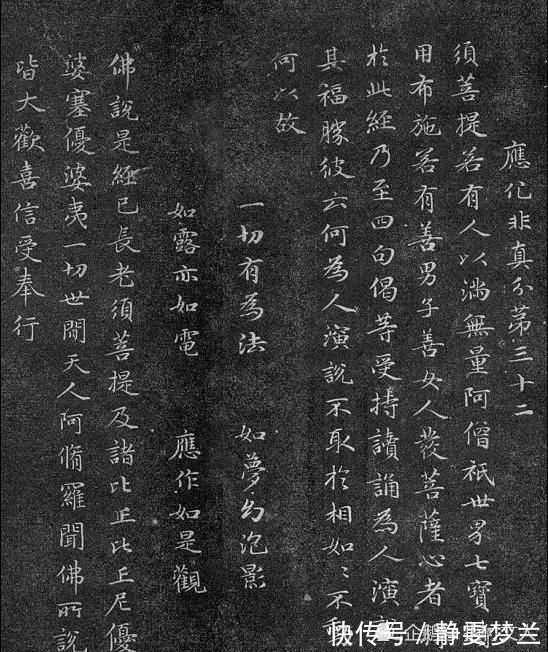 應化非真分第三十二
須菩提若有人以滿無量阿僧祇世界七寶
用布施若有善男子善女人發菩薩心者
於此經乃至四句偈等受持讀誦為人演
其福勝彼云何為人演說不取於相如〻不動
何以故
一切有為法 如夢幻泡影
如露亦如電 應作如是觀
佛說是經已長老須菩提及諸比丘比丘尼優
婆塞優婆夷一切世間天人阿脩羅聞佛所說
皆大歡喜信受奉行
快传号/静雯梦兰